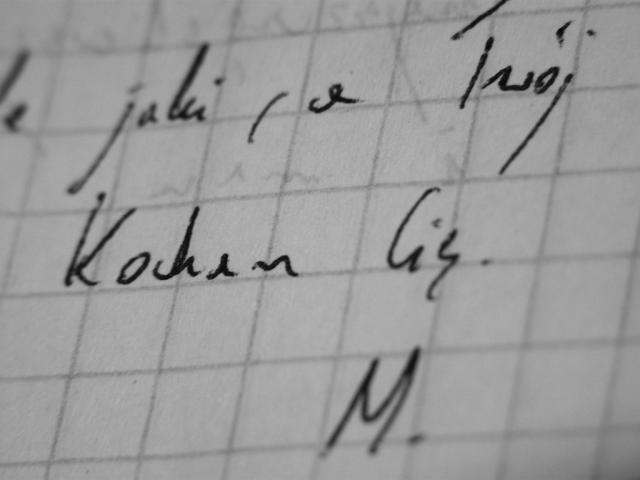 jaki, a Twój
Kocham Cię.
M.